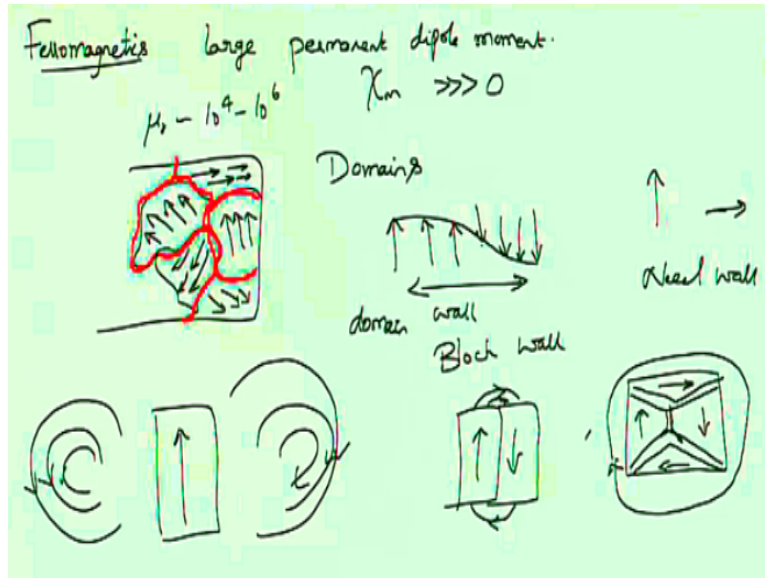 Ferromagnetics large permanent dipole moment.
χm >>> 0
μr ~ 10⁴ - 10⁶
Domains
domain wall
Bloch wall
Neel wall